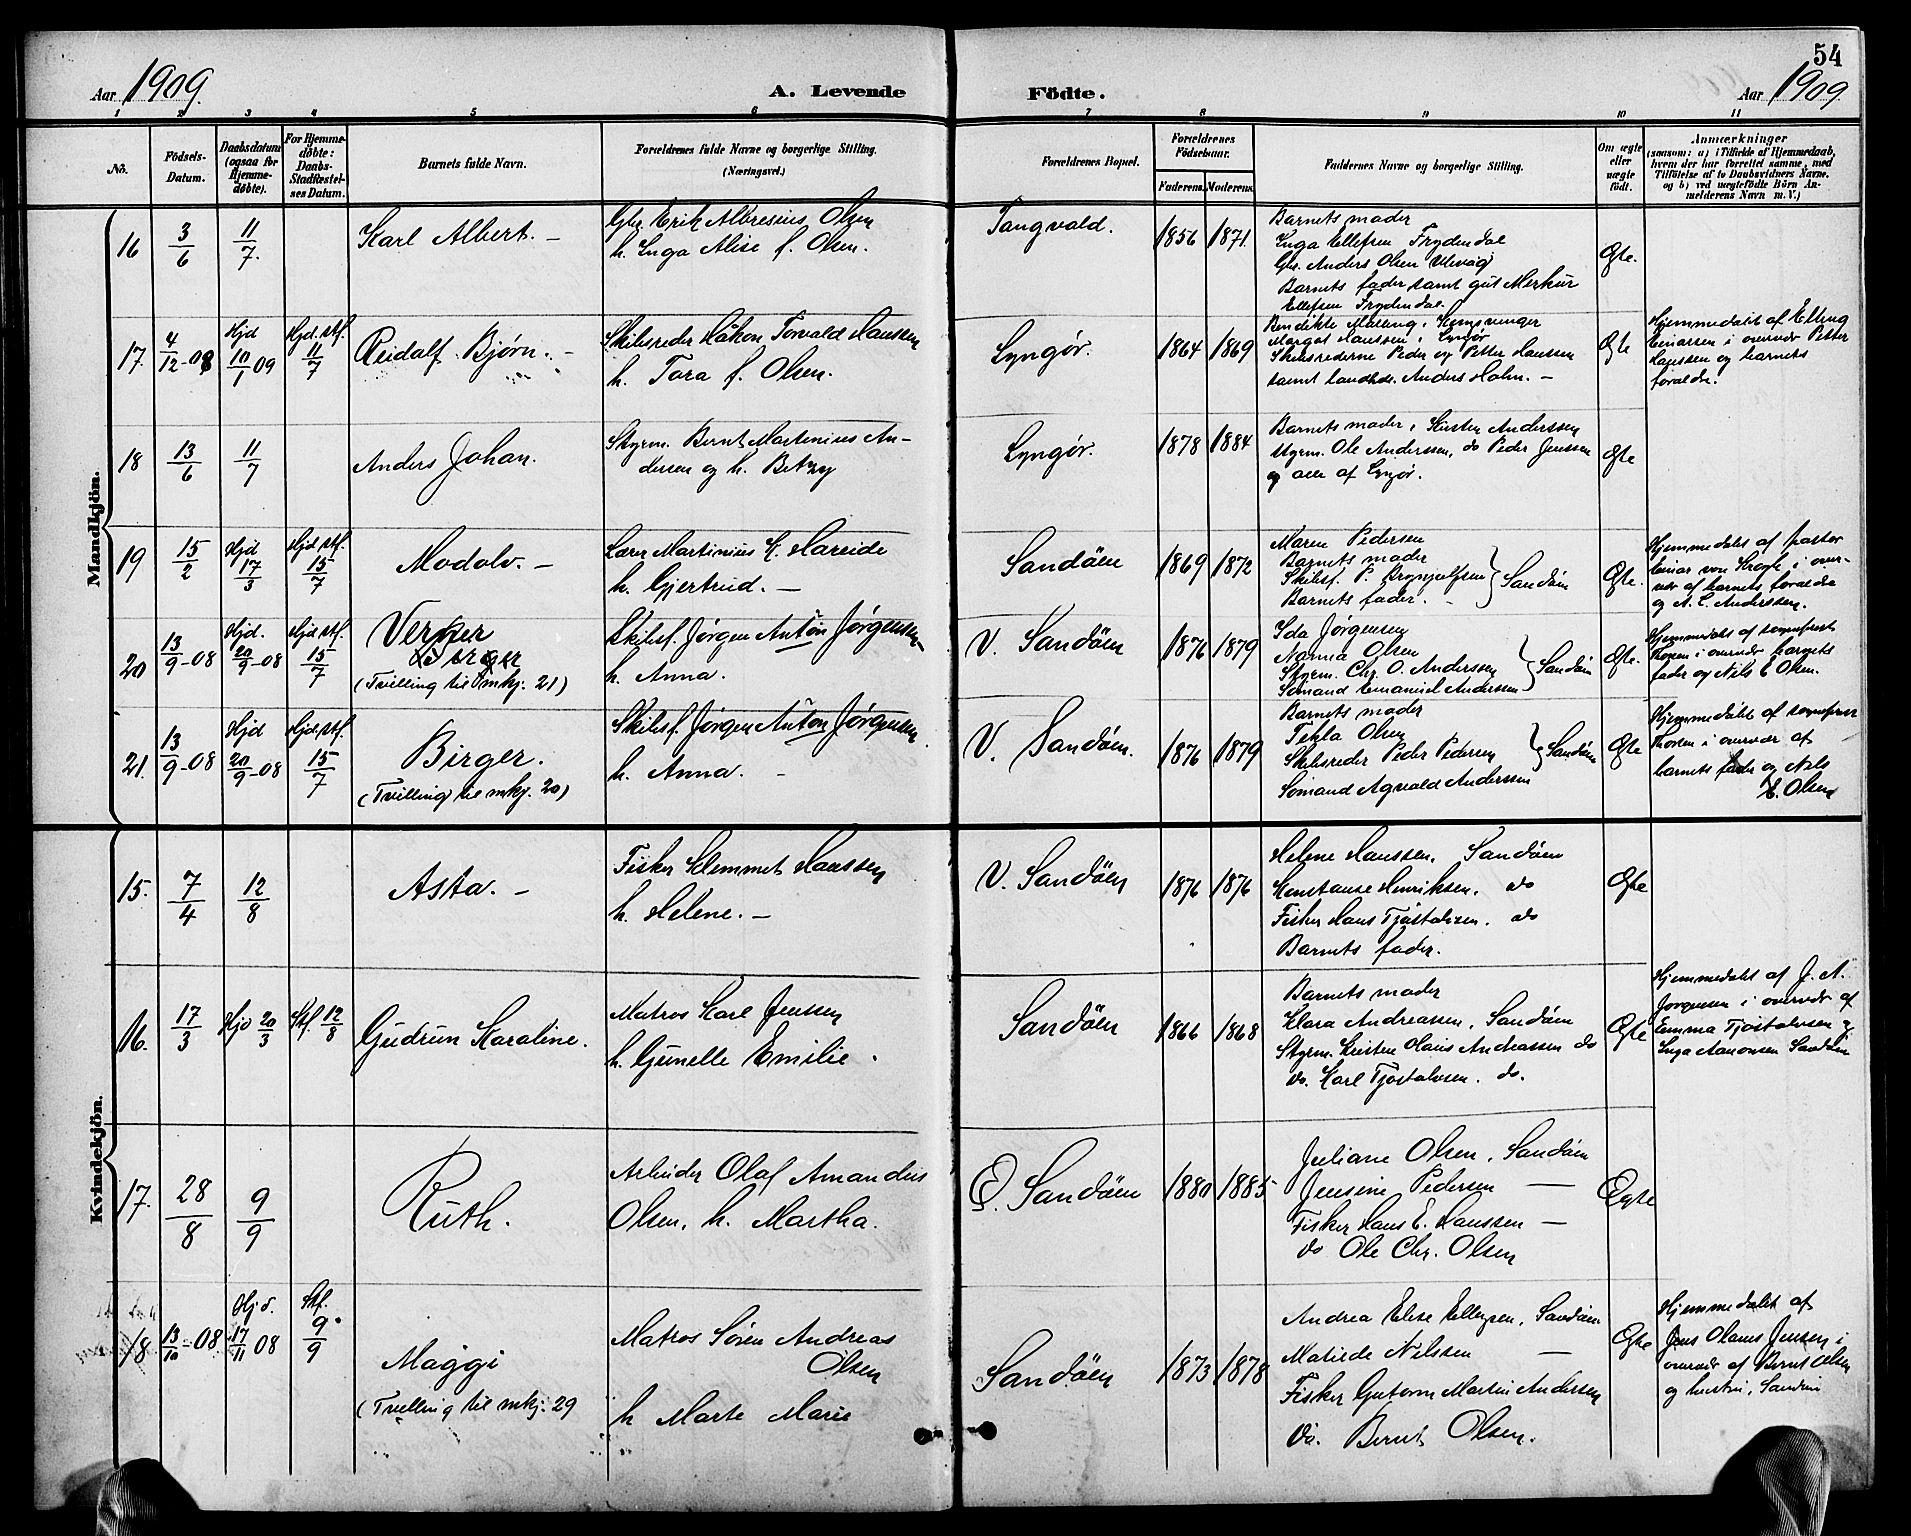 54
Aar 1909.
A. Levende
Födte.
Aar 1909.
1 2 3 4 5 6 7 8 9 10 11
No.
Födsels-
Datum.
Daabsdatum
(ogsaa for
Hjemme-
döbte).
For Hjemme-
döbte:
Daabs-
Stadfæstel-
ses Datum.
Barnets fulde Navn.
Forældrenes fulde Navne og borgerlige Stilling.
(Næringsvei.)
Forældrenes Bopæl.
Forældrenes
Födselsaar.
Faderens. Moderens.
Faddernes Navne og borgerlige Stilling.
Om ægte
eller
uægte
født.
Anmærkninger
(saasom: a) i Tilfælde af Hjemmedaab,
hvem der har forrettet samme, med
Tilföielse af to Daabsvidners Navne.
og b) ved uægtefödte Börn An-
melderens Navn m. V.)
Mandkjön.
16 3/6 11/7. Karl Albert. –
Gbr. Erik Albresius Olsen
h. Inga Alise f. Olsen.
Tangvald. 1856 1871.
Barnets moder
Inga Ellefsen Frydendal
Gbr. Anders Olsen Ulevåg
Barnets fader samt gut Merkur
Ellefsen Frydendal.
Ægte.
17. 4/12-08 Hjd 10/1 09 Hjd. stf. 11/7 Reidalf Bjørn. –
Skibsreder Håkon Torvald Hanssen
h. Tora f. Olsen.
Lyngör. 1864 1869
Bendikte Malling, Kongsvinger
Margat Hanssen, Lyngör
Skibsrederne Peder og Petter Hanssen
samt landhdl. Anders Holm. –
Ægte
Hjemmedøbt af Elling
Einarsen i overvær Petter
Hanssen og barnets
foreldre.
18 13/6 11/7 Anders Johan.
Styrm. Bernt Martinius An-
dersen og h. Betzy
Lyngör. 1878 1884
Barnets moder, Kirsten Anderssen
styrm. Ole Anderssen, do Peder Jenssen
og alle af Lyngör.
Ægte
19 15/2 Hjd 17/3 Hjd stf. 15/7 Modolv. –
Lærer Martinius K. Hareide
h. Gjertrud. –
Sandöen 1869 1872
Maren Pedersen
Barnets moder
Skibsf. P. Brynjulfsen
Barnets fader. –
Sandöen
Ægte.
Hjemmedøbt af pastor
Einar von Krogh i over-
vær af barnets foreldre
og A. C. Anderssen.
20 13/9-08 Hjd. 20/9-08 Hjd stf. 15/7 Verner
Birger
(Tvilling til mkj. 21)
Skibsf. Jörgen Anton Jörgensen
h. Anna.
V. Sandöen 1876 1879
Ida Jörgensen
Nanna Olsen
Styrm. Chr. O. Anderssen
Sömand Emanuel Andersen
Sandöen
Ægte.
Hjemmedøbt af sogneprest
Thorsen i overvær barnets
fader og Nils E Olsen.
21. 13/9-08 Hjd 20/9-08 Hjd. stf. 15/7 Birger.
(Tvilling til mkj. 20)
Skibsf. Jörgen Anton Jörgensen
h. Anna. –
V. Sandöen. 1876 1879
Barnets moder
Tekla Olsen
Skibsreder Peder Pedersen
Sömand Agvald Anderssen
Sandöen
Ægte
Hjemmedøbt af sogneprest
Thorsen i overvær af
barnets fader og Nils
E. Olsen
Kvindekjön.
15. 7/4 12/8 Asta. –
Fisker Klemmet Hanssen
h. Helene. –
V. Sandöen 1876 1876
Helene Hanssen, Sandöen
Konstanse Henriksen, do
Fisker Hans Tjöstolvsen, do
Barnets fader.
Ægte
16. 17/3 Hjd 20/3 Stf. 12/8 Gudrun Karoline.
Matros Karl Jenssen
h. Gunelle Emilie.
Sandöen 1866 1868
Barnets moder
Klara Andreassen, Sandöen
Styrm. Kristen Olaus Andreassen do
do. Karl Tjöstolvsen. do.
Ægte
Hjemmedøbt af J. A.
Jörgensen i overvær af
Emma Tjöstolvsen og
Inga Aanonsen Sandöen
17. 28/8 9/9 Ruth.
Arbeider Olaf Amandus
Olsen, h. Martha.
Ö. Sandöen 1880 1885
Juliane Olsen, Sandöen
Jensine Pedersen –
Fisker Hans E. Hanssen –
do Ole Chr. Olsen
Ægte
18. 13/10-08 Hjd. 17/11 08 Stf. 9/9 Maggi
(Tvilling til mkj. 29
Matros Sören Andreas
Olsen
h Marte Marie
Sandöen 1873 1878
Andrea Elise Ellingsen, Sandöen
Matilde Nilssen –
Fisker Gutorm Martin Andersen
do. Bernt Olsen.
Ægte
Hjemmedøbt af
Jens Olaus Jensen i
overvær af Bernt Olsen
og hustru, Sandöen